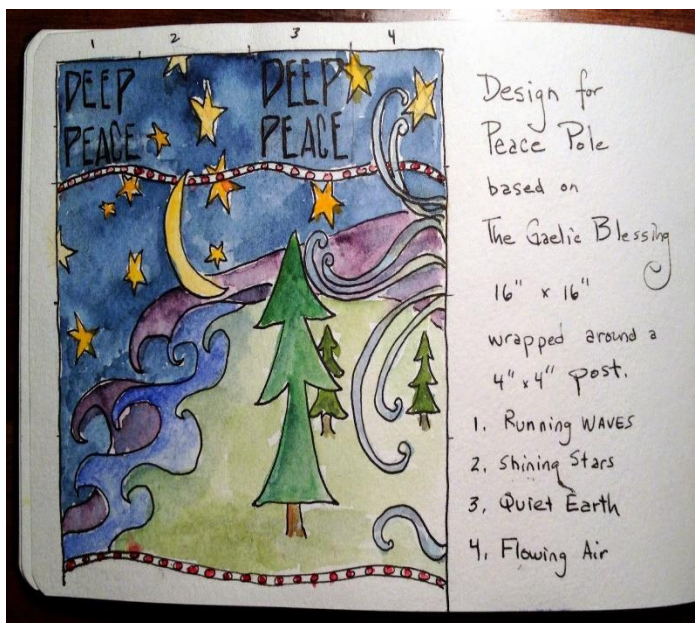 1 2 3 4
DEEP
PEACE
DEEP
PEACE
Design for
Peace Pole
based on
The Gaelic Blessing
16" x 16"
wrapped around a
4" x 4" post.
1. Running WAVES
2. Shining Stars
3. Quiet Earth
4. Flowing Air